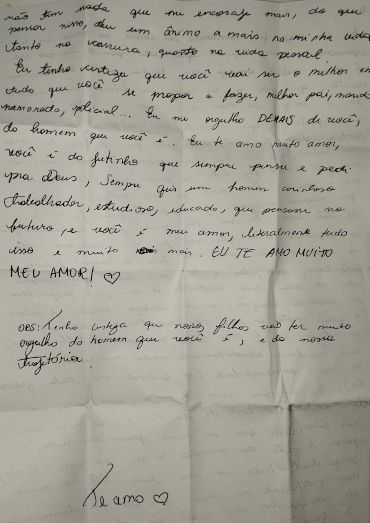 não tem nada que me encoraje mais, do que
pensar nisso, deu um ânimo a mais na minha vida,
tanto na carreira, quanto na vida pessoal.
Eu tenho certeza que você vai ser o melhor em
tudo que você se propor a fazer, melhor pai, marido,
namorado, policial... Eu me orgulho DEMAIS de você,
do homem que você é. Eu te amo muito amor,
você é do jeitinho que sempre pensei e pedi
pra Deus, Sempre quis um homem carinhoso,
trabalhador, estudioso, educado, que pensasse no
futuro, e você é meu amor, literalmente tudo
isso e muito mais. EU TE AMO MUITO
MEU AMOR! ♡
OBS: Tenho certeza que nossos filhos vão ter muito
orgulho do homem que você é, e da nossa
trajetória.
Te amo ♡